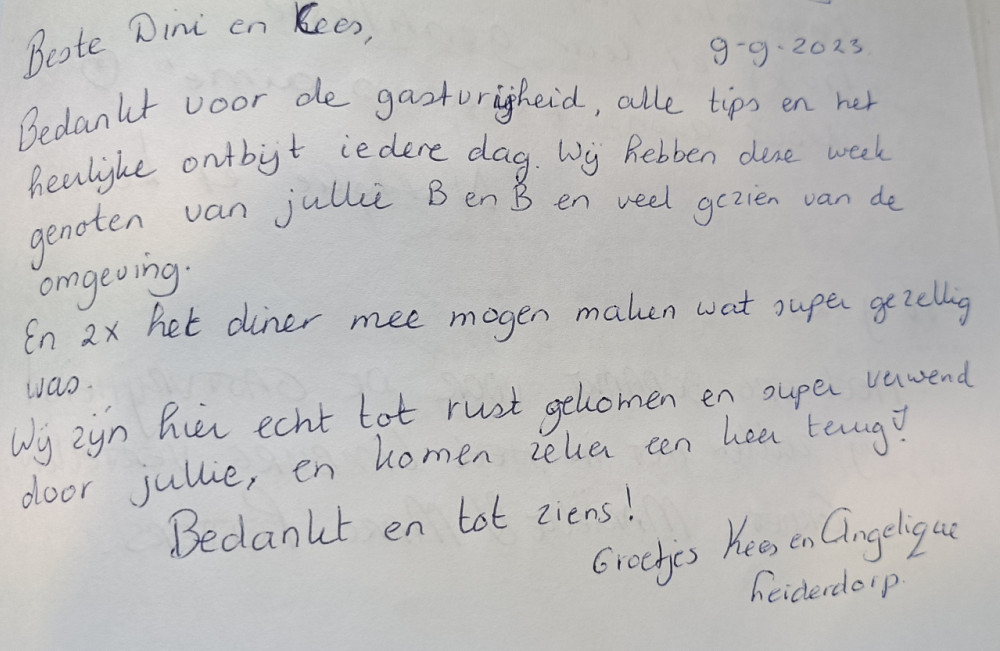 Beste Dini en Kees,
9-9-2023
Bedankt voor de gastvrijheid, alle tips en het
heerlijke ontbijt iedere dag. Wij hebben deze week
genoten van jullie B en B en veel gezien van de
omgeving.
En 2x het diner mee mogen maken wat super gezellig
was.
Wij zijn hier echt tot rust gekomen en super verwend
door jullie, en komen zeker een keer terug!
Bedankt en tot ziens!
Groetjes Kees en Angelique
Leiderdorp.